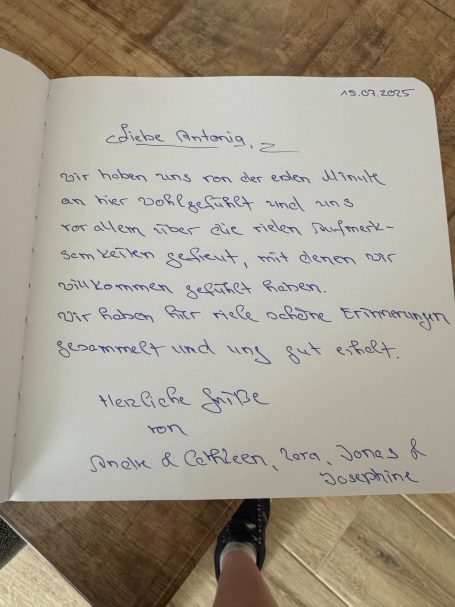 19.07.2025
Liebe Antonia,
wir haben uns von der ersten Minute
an hier wohlgefühlt und uns
vor allem über die vielen Aufmerk-
samkeiten gefreut, mit denen wir
willkommen gefühlt haben.
Wir haben hier viele schöne Erinnerungen
gesammelt und uns gut erholt.
Herzliche Grüße
von
Andre & Cathleen, Lara, Jonas &
Josephine